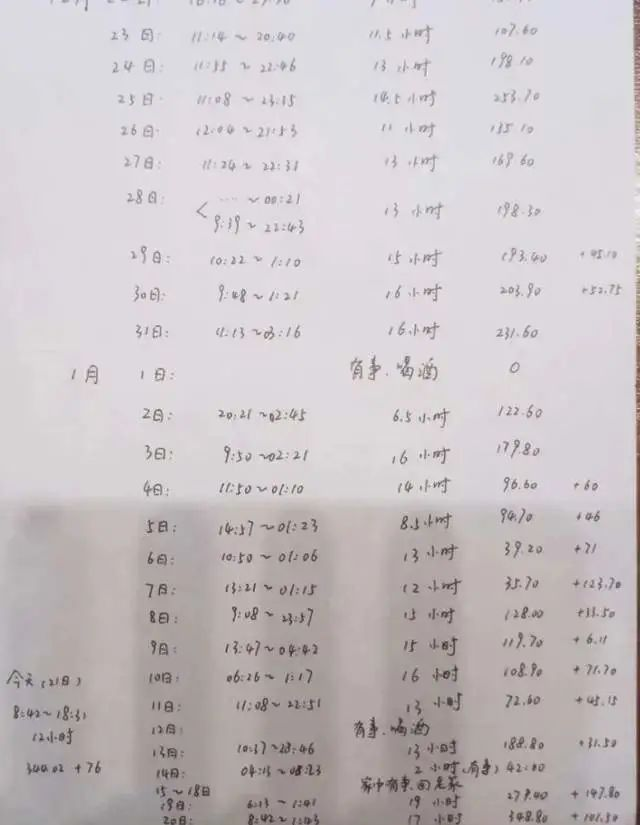 23日: 11:14~20:40 11.5小时 107.60
24日: 11:55~22:46 13小时 198.10
25日: 11:08~23:35 14.5小时 253.70
26日: 12:04~21:53 11小时 135.10
27日: 11:24~22:31 13小时 169.60
28日: < ···~00:21
9:39~22:43 13小时 198.30
29日: 10:22~1:10 15小时 193.40 +45.10
30日: 9:48~1:21 16小时 203.90 +52.75
31日: 11:13~03:16 16小时 231.60
1月 1日: 有事、喝酒 0
2日: 20:21~02:45 6.5小时 122.60
3日: 9:50~02:21 16小时 179.80
4日: 11:50~01:10 14小时 96.60 +60
5日: 14:57~01:23 8.5小时 94.70 +46
6日: 10:50~01:06 13小时 39.20 +71
7日: 13:21~01:15 12小时 35.70 +123.70
8日: 9:08~23:57 15小时 128.00 +33.50
9日: 13:47~04:42 15小时 119.70 +6.11
10日: 06:26~1:17 16小时 108.90 +71.70
11日: 11:08~22:51 13小时 72.60 +45.15
12日: 有事、喝酒
13日: 10:37~23:46 13小时 188.80 +31.50
14日: 04:13~08:23 2小时(有事) 42.00
15~18日 家中有事回老家
19日: 6:13~1:41 19小时 279.40 +147.80
20日: 8:42~1:43 17小时 348.80 +101.50
今天(21日)
8:42~18:31
12小时
344.02 +76